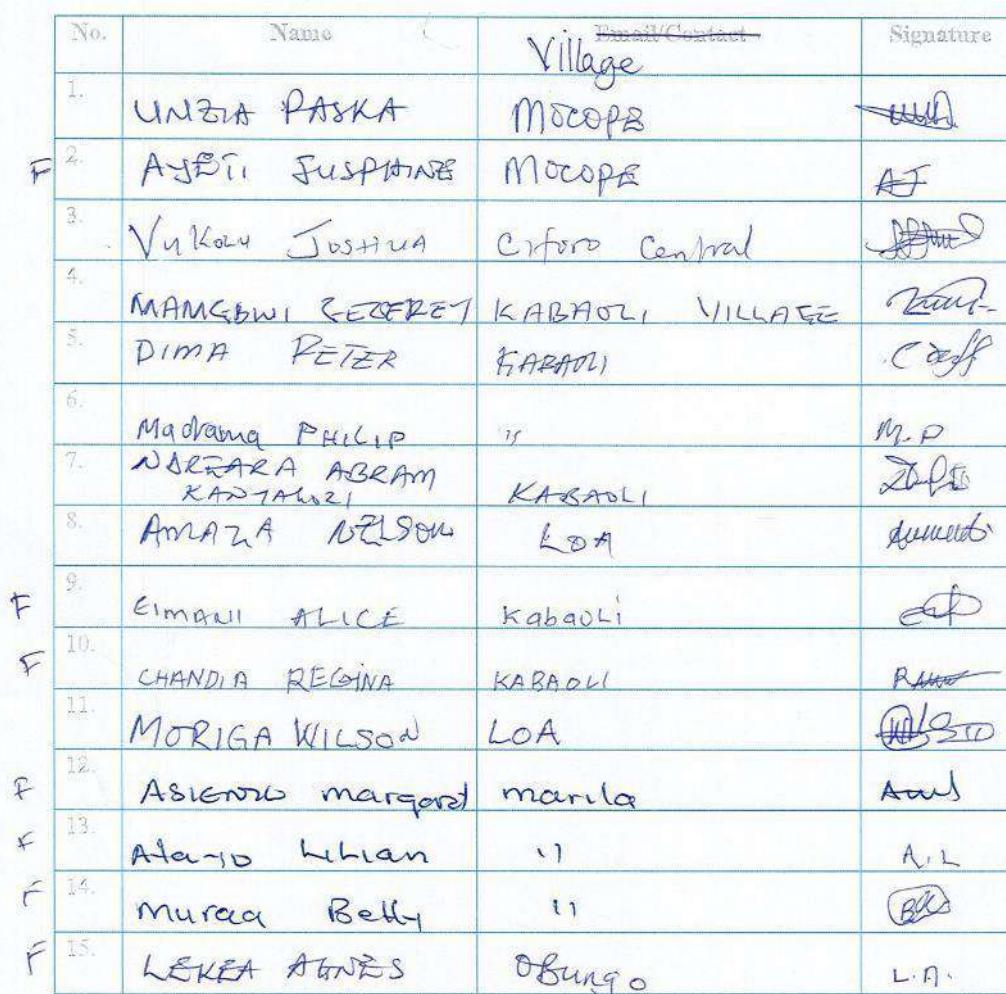 No. Name Email/Contact Signature
Village
1. UNZIA PASKA MOCOPE
F 2. AYETI JUSPHINE MOCOPE AJ
3. Vukolu JOSHUA Ciforo Central
4. MAMGBWI KABAOLI VILLAGE
5. DIMA PETER KABAOLI
6. Madrama PHILIP " M.P
7. ABRAM
KABAOLI
8. AMAZA NELSON LOA
F 9. EIMANI ALICE Kabaoli
F 10. CHANDIA REGINA KABAOLI
11. MORIGA WILSON LOA
F 12. ASIENZO margaret marila
F 13. Atayo Lilian " A.L
F 14. Muraa Betty "
F 15. LEKEA AGNES Obungo L.A.